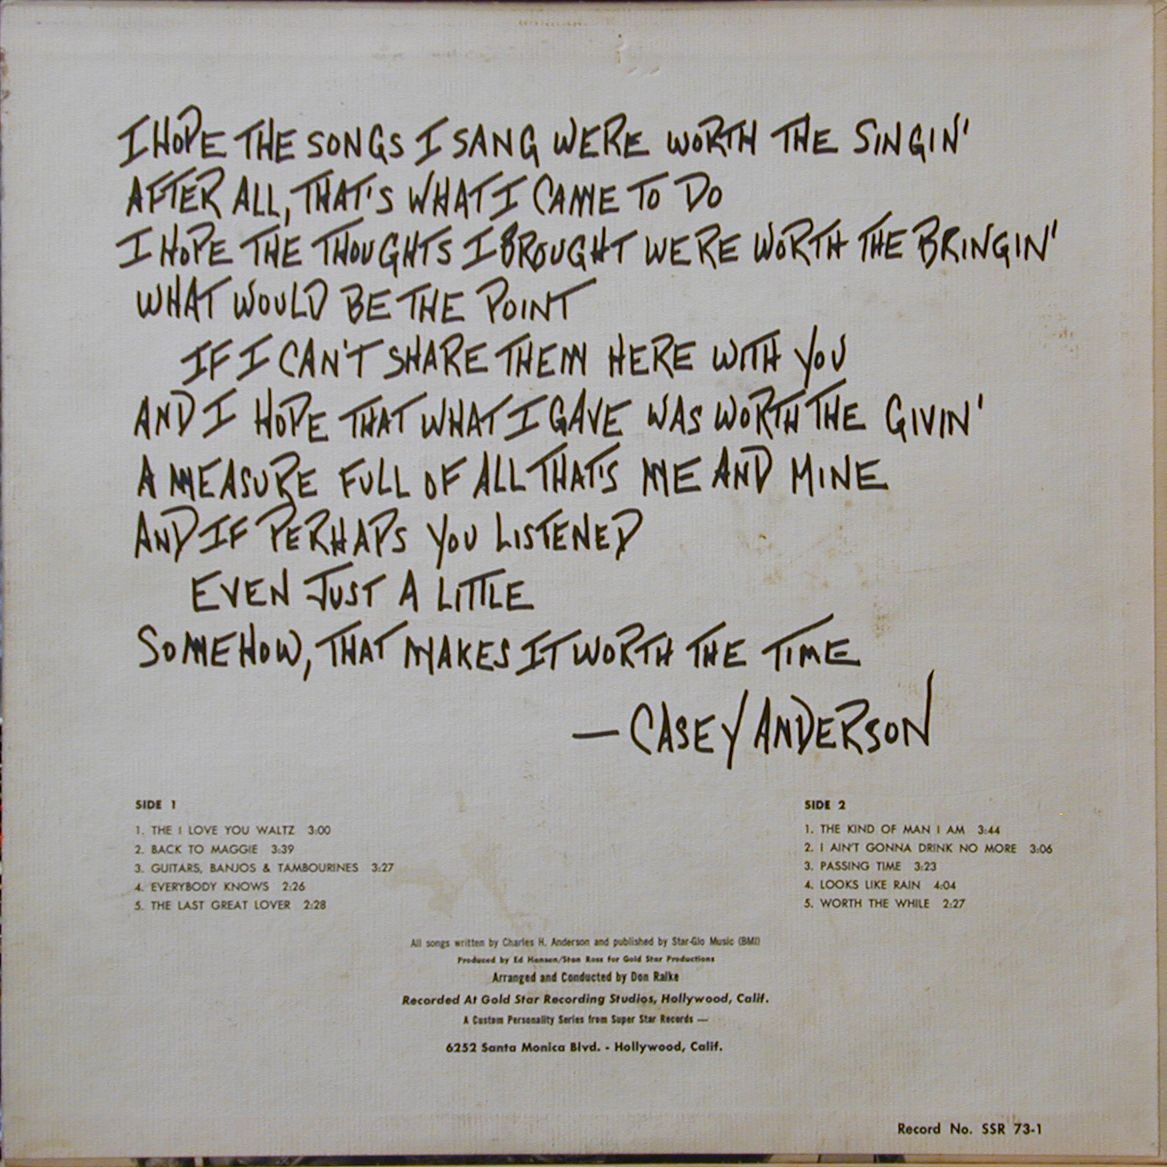 I HOPE THE SONGS I SANG WERE WORTH THE SINGIN'
AFTER ALL, THAT'S WHAT I CAME TO DO
I HOPE THE THOUGHTS I BROUGHT WERE WORTH THE BRINGIN'
WHAT WOULD BE THE POINT
IF I CAN'T SHARE THEM HERE WITH YOU
AND I HOPE THAT WHAT I GAVE WAS WORTH THE GIVIN'
A MEASURE FULL OF ALL THAT'S ME AND MINE
AND IF PERHAPS YOU LISTENED
EVEN JUST A LITTLE
SOMEHOW, THAT MAKES IT WORTH THE TIME
— CASEY ANDERSON
SIDE 1
1. THE I LOVE YOU WALTZ 3:00
2. BACK TO MAGGIE 3:39
3. GUITARS, BANJOS & TAMBOURINES 3:27
4. EVERYBODY KNOWS 2:26
5. THE LAST GREAT LOVER 2:28
SIDE 2
1. THE KIND OF MAN I AM 3:44
2. I AIN'T GONNA DRINK NO MORE 3:06
3. PASSING TIME 3:23
4. LOOKS LIKE RAIN 4:04
5. WORTH THE WHILE 2:27
All songs written by Charles H. Anderson and published by Star-Glo Music (BMI)
Produced by Ed Hansen/Stan Ross for Gold Star Productions
Arranged and Conducted by Don Ralke
Recorded At Gold Star Recording Studios, Hollywood, Calif.
A Custom Personality Series from Super Star Records —
6252 Santa Monica Blvd. - Hollywood, Calif.
Record No. SSR 73-1